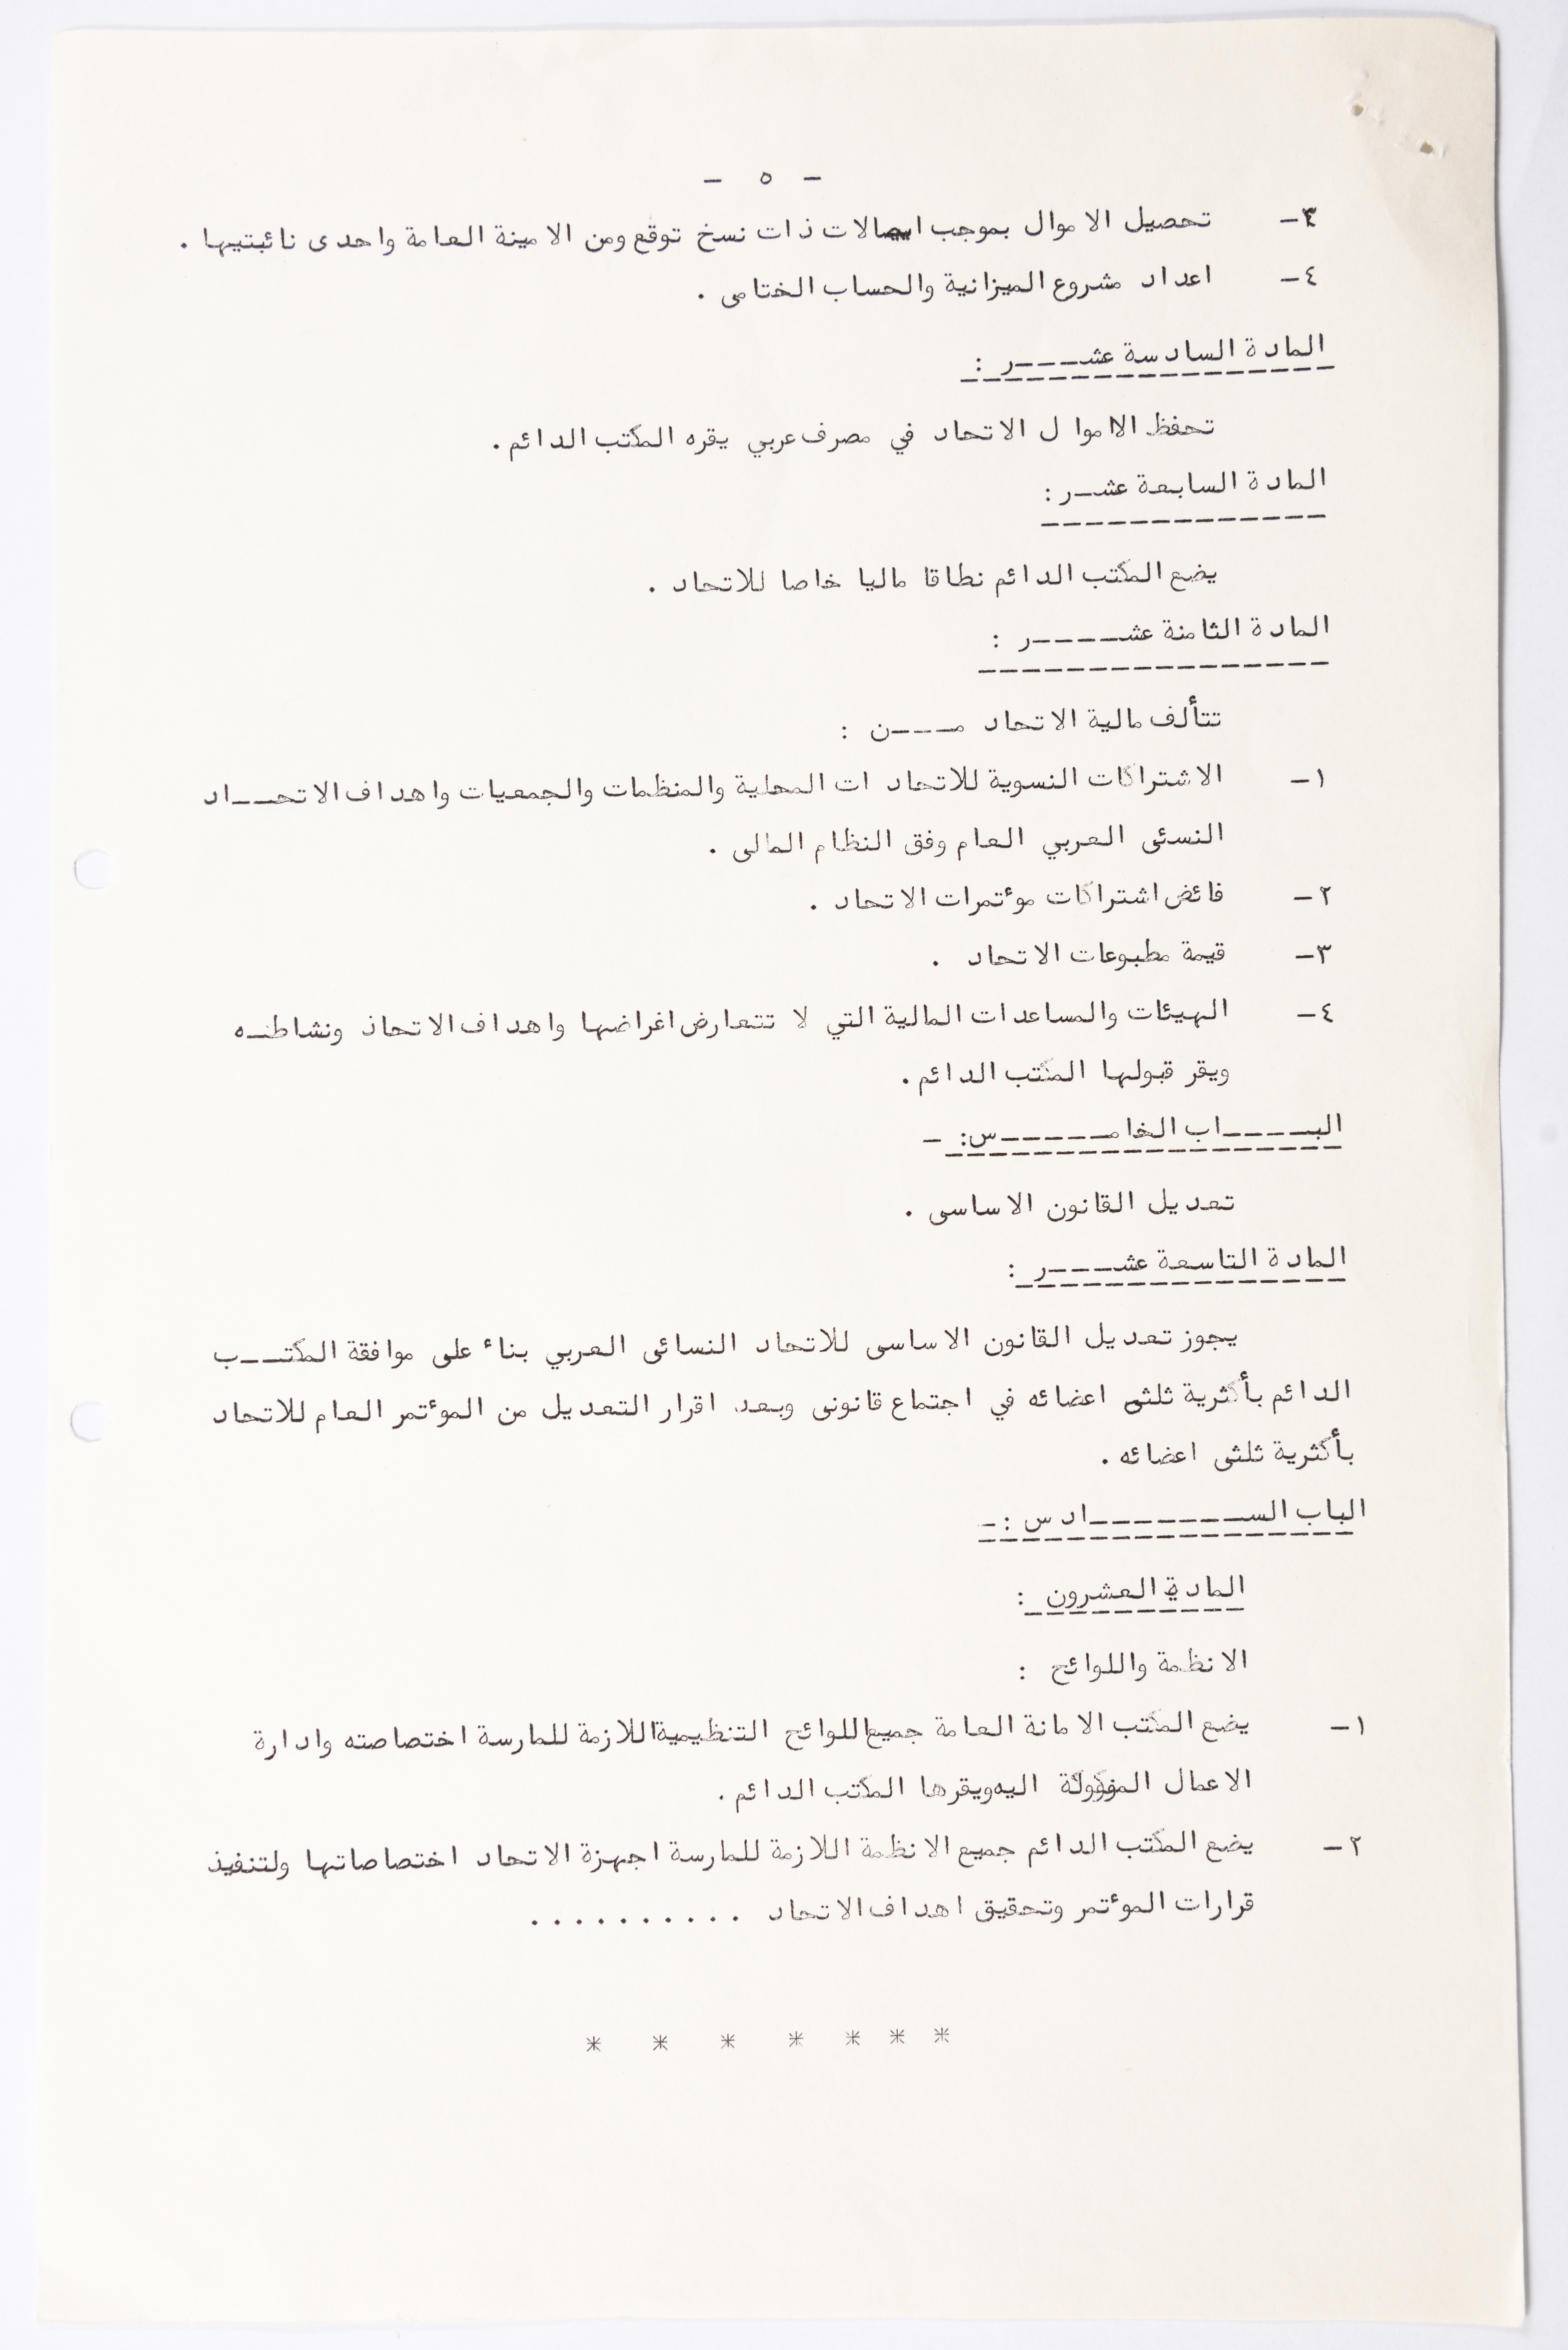 - ٥ -
٣- تحصيل الاموال بموجب ايصالات ذات نسخ توقع ومن الامينة العامة واحدى نائبتيها .
٤- اعداد مشروع الميزانية والحساب الختامى .
المادة السادسة عشـــر :
تحفظ الاموال الاتحاد في مصرف عربي يقره المكتب الدائم .
المادة السابعة عشـر :
يضع المكتب الدائم نطاقا ماليا خاصا للاتحاد .
المادة الثامنة عشـــــر :
تتألف مالية الاتحاد مــــن :
١- الاشتراكات النسوية للاتحاد ات المحلية والمنظمات والجمعيات واهداف الاتحـــاد
النسئى العربي العام وفق النظام المالى .
٢- فائض اشتراكات موءتمرات الاتحاد .
٣- قيمة مطبوعات الاتحاد .
٤- الهيئات والمساعدات المالية التي لا تتعارض اغراضها واهداف الاتحاذ ونشاطـه
ويقر قبولها المكتب الدائم .
البـــــاب الخامــــــس: -
تعديل القانون الاساسى .
المادة التاسعة عشــــر :
يجوز تعديل القانون الاساسى للاتحاد النسائى العربي بناء على موافقة المكتـــب
الدائم بأكثرية ثلثى اعضائه في اجتماع قانونى وبعد اقرار التعديل من الموءتمر العام للاتحاد
بأكثرية ثلثى اعضائه .
الباب الســــــــادس :-
المادة العشرون :
الانظمة واللوائح :
١- يضع المكتب الامانة العامة جميع اللوائح التنظيمية اللازمة للمارسة اختصاصته وادارة
الاعمال اليه ويقرها المكتب الدائم .
٢- يضع المكتب الدائم جميع الانظمة اللازمة للمارسة اجهزة الاتحاد اختصاصاتها ولتنفيذ
قرارات الموءتمر وتحقيق اهداف الاتحاد . . . . . . . . . .
* * * * * * *